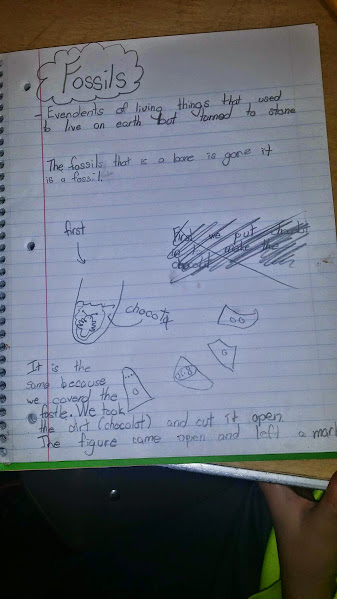 Fossils
- Evendents of living things that used
to live on earth but turned to stone
The fossils that is a bone is gone it
is a fossil.
first
First we put chocolat
make the
chocolat
chocota
It is the
same because
we coverd the
fostle. We took
the dirt (chocolat) and cut it open.
The figure came open and left a mark